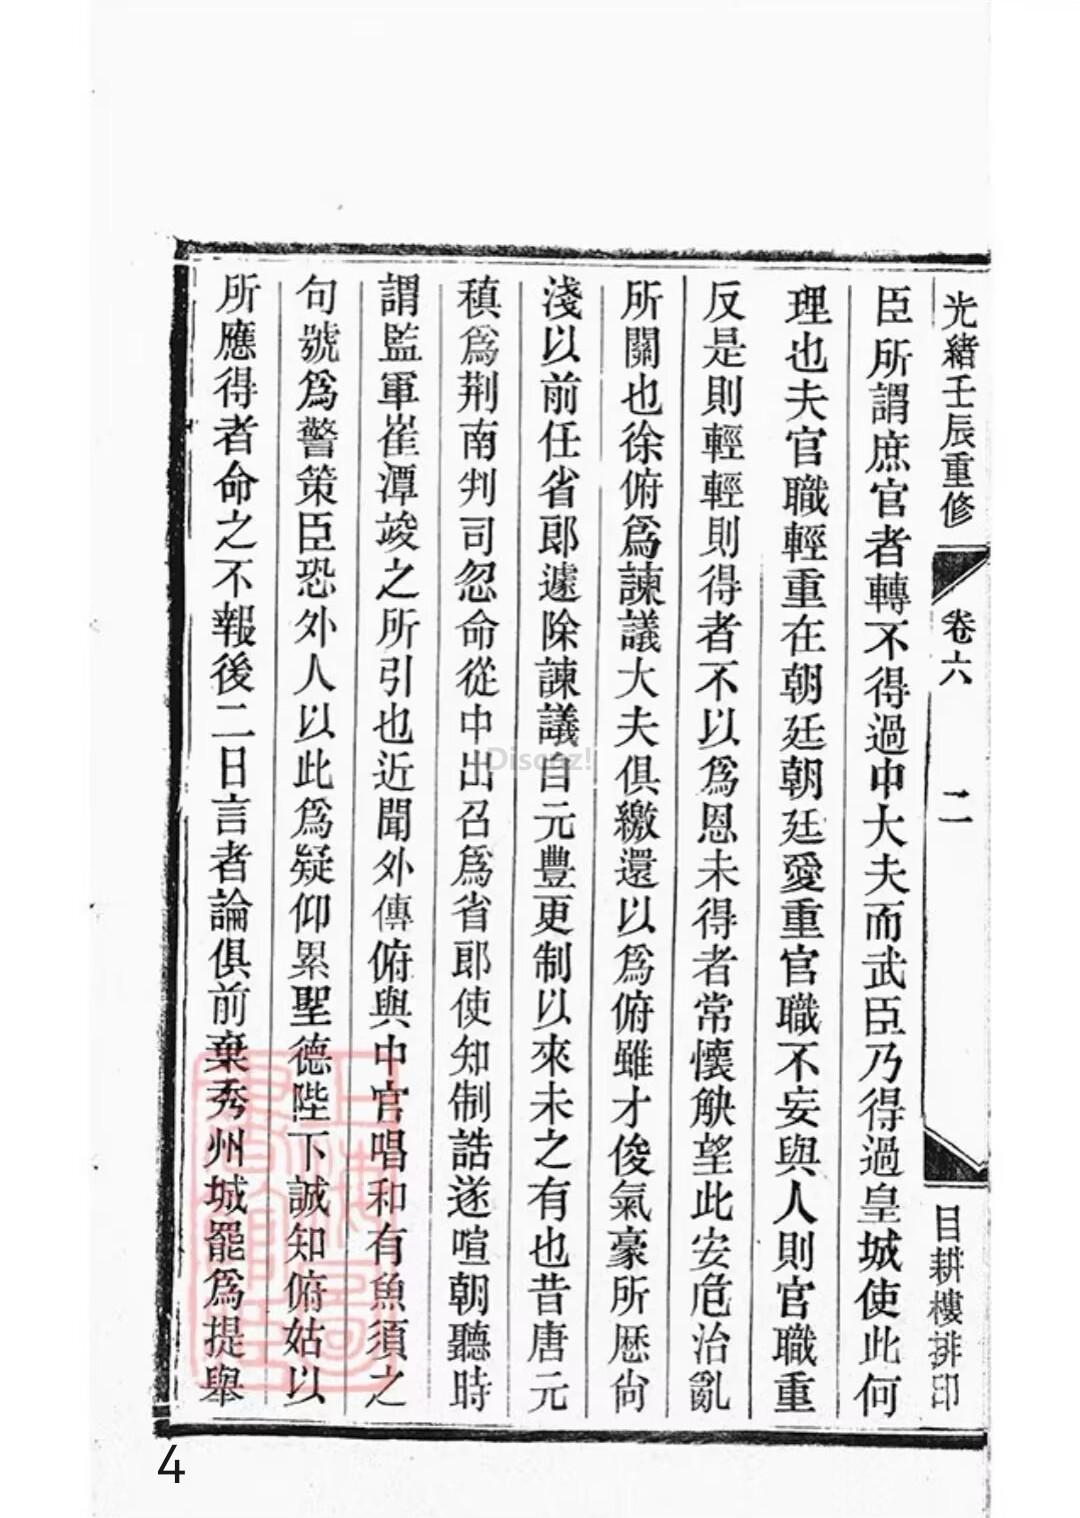 光緒壬辰重修
卷六
二
目耕樓排印
臣所謂庶官者轉不得過中大夫而武臣乃得過皇城使此何
理也夫官職輕重在朝廷朝廷愛重官職不妄與人則官職重
反是則輕輕則得者不以爲恩未得者常懷觖望此安危治亂
所關也徐俯爲諫議大夫俱繳還以爲俯雖才俊氣豪所歷尚
淺以前任省郎遽除諫議自元豐更制以來未之有也昔唐元
稹爲荆南判司忽命從中出召爲省郎使知制誥遂喧朝聽時
謂監軍崔潭峻之所引也近聞外傳俯與中官唱和有魚須之
句號爲警策臣恐外人以此爲疑仰累聖德陛下誠知俯姑以
所應得者命之不報後二日言者論俱前棄秀州城罷爲提舉
Discuz!
4